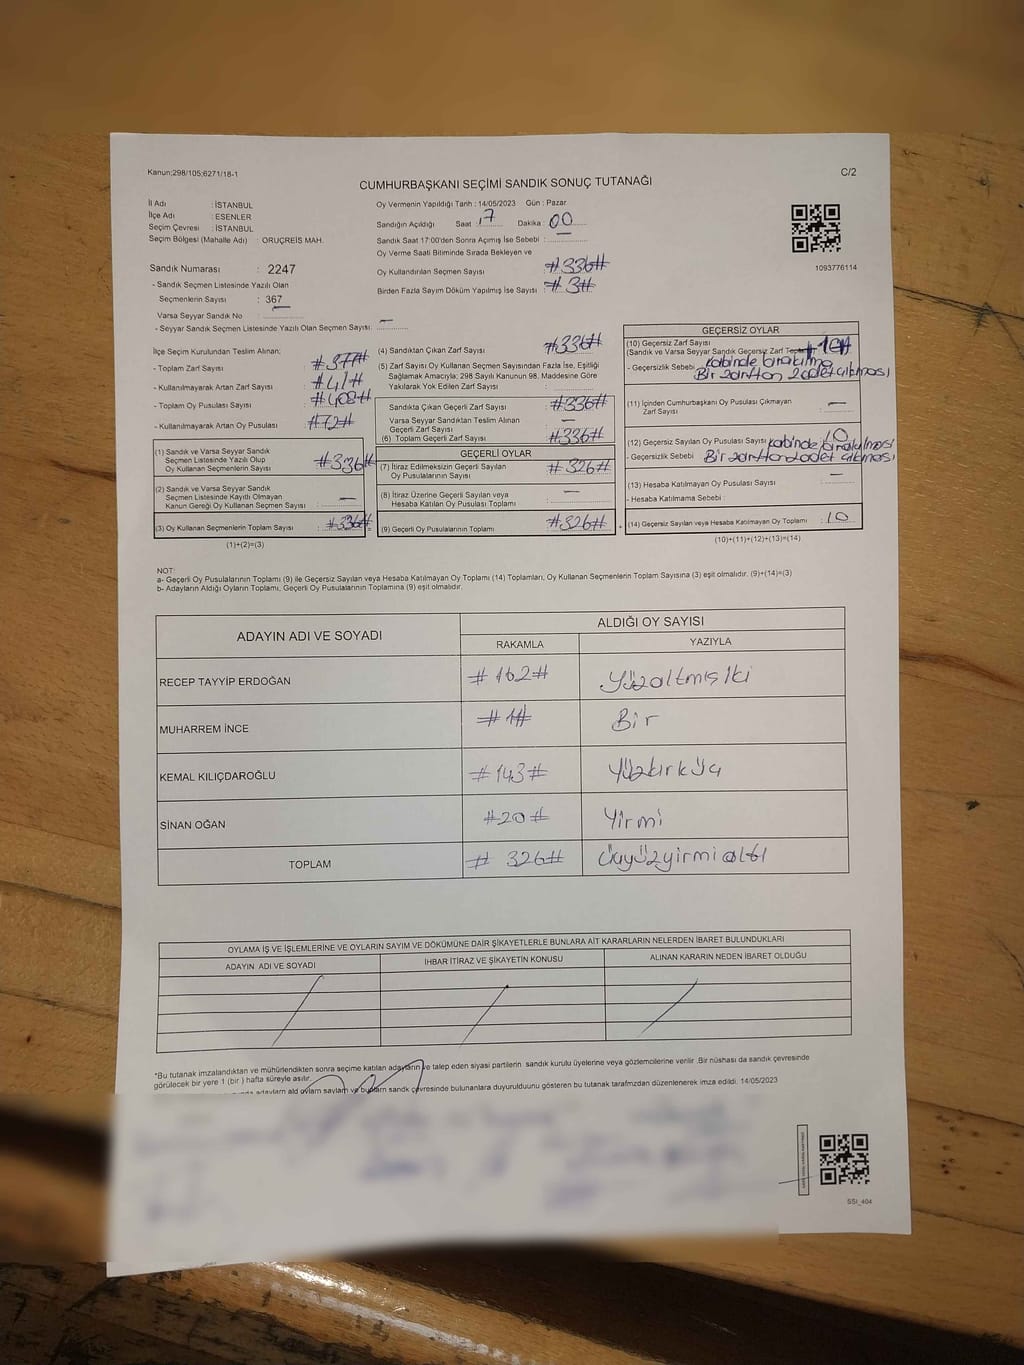 Kanun;298/105;6271/18-1
C/2
CUMHURBAŞKANI SEÇİMİ SANDIK SONUÇ TUTANAĞI
İl Adı : İSTANBUL
İlçe Adı : ESENLER
Seçim Çevresi : İSTANBUL
Seçim Bölgesi (Mahalle Adı) : ORUÇREİS MAH.
Sandık Numarası : 2247
- Sandık Seçmen Listesinde Yazılı Olan
Seçmenlerin Sayısı : 367
Varsa Seyyar Sandık No :
- Seyyar Sandık Seçmen Listesinde Yazılı Olan Seçmen Sayısı: —
Oy Vermenin Yapıldığı Tarih : 14/05/2023 Gün : Pazar
Sandığın Açıldığı Saat : 17 Dakika : 00
Sandık Saat 17:00'den Sonra Açımış İse Sebebi :
Oy Verme Saati Bitiminde Sırada Bekleyen ve
Oy Kullandırılan Seçmen Sayısı : #336#
Birden Fazla Sayım Döküm Yapılmış İse Sayısı : #3#
1093776114
İlçe Seçim Kurulundan Teslim Alınan:
- Toplam Zarf Sayısı : #377#
- Kullanılmayarak Artan Zarf Sayısı : #41#
- Toplam Oy Pusulası Sayısı : #408#
- Kullanılmayarak Artan Oy Pusulası : #72#
(1) Sandık ve Varsa Seyyar Sandık
Seçmen Listesinde Yazılı Olup
Oy Kullanan Seçmenlerin Sayısı : #336#
(2) Sandık ve Varsa Seyyar Sandık
Seçmen Listesinde Kayıtlı Olmayan
Kanun Gereği Oy Kullanan Seçmen Sayısı : —
(3) Oy Kullanan Seçmenlerin Toplam Sayısı : #336#
(1)+(2)=(3)
(4) Sandıktan Çıkan Zarf Sayısı : #336#
(5) Zarf Sayısı Oy Kullanan Seçmen Sayısından Fazla İse, Eşitliği
Sağlamak Amacıyla; 298 Sayılı Kanunun 98. Maddesine Göre
Yakılarak Yok Edilen Zarf Sayısı :
Sandıkta Çıkan Geçerli Zarf Sayısı : #336#
Varsa Seyyar Sandıktan Teslim Alınan
Geçerli Zarf Sayısı : —
(6) Toplam Geçerli Zarf Sayısı : #336#
GEÇERLİ OYLAR
(7) İtiraz Edilmeksizin Geçerli Sayılan
Oy Pusulalarının Sayısı : #326#
(8) İtiraz Üzerine Geçerli Sayılan veya
Hesaba Katılan Oy Pusulası Toplamı : —
(9) Geçerli Oy Pusulalarının Toplamı : #326#
GEÇERSİZ OYLAR
(10) Geçersiz Zarf Sayısı
(Sandık ve Varsa Seyyar Sandık Geçersiz Zarf #10#
- Geçersizlik Sebebi : kabinde bırakılma
Bir zarftan 2 adet çıkması
(11) İçinden Cumhurbaşkanı Oy Pusulası Çıkmayan
Zarf Sayısı : —
(12) Geçersiz Sayılan Oy Pusulası Sayısı : 10
- Geçersizlik Sebebi : kabinde bırakılması
Bir zarftan 2 adet çıkması
(13) Hesaba Katılmayan Oy Pusulası Sayısı : —
- Hesaba Katılmama Sebebi :
(14) Geçersiz Sayılan veya Hesaba Katılmayan Oy Toplamı : 10
(10)+(11)+(12)+(13)=(14)
NOT:
a- Geçerli Oy Pusulalarının Toplamı (9) ile Geçersiz Sayılan veya Hesaba Katılmayan Oy Toplamı (14) Toplamları, Oy Kullanan Seçmenlerin Toplam Sayısına (3) eşit olmalıdır. (9)+(14)=(3)
b- Adayların Aldığı Oyların Toplamı, Geçerli Oy Pusulalarının Toplamına (9) eşit olmalıdır.
ADAYIN ADI VE SOYADI
ALDIĞI OY SAYISI
RAKAMLA YAZIYLA
RECEP TAYYİP ERDOĞAN #162# Yüzaltmışiki
MUHARREM İNCE #1# Bir
KEMAL KILIÇDAROĞLU #143# Yüzkırküç
SİNAN OĞAN #20# Yirmi
TOPLAM # 326# Üçyüzyirmialtı
OYLAMA İŞ VE İŞLEMLERİNE VE OYLARIN SAYIM VE DÖKÜMÜNE DAİR ŞİKAYETLERLE BUNLARA AİT KARARLARIN NELERDEN İBARET BULUNDUKLARI
ADAYIN ADI VE SOYADI İHBAR İTİRAZ VE ŞİKAYETİN KONUSU ALINAN KARARIN NEDEN İBARET OLDUĞU
*Bu tutanak imzalandıktan ve mühürlendikten sonra seçime katılan adayların ve talep eden siyasi partilerin sandık kurulu üyelerine veya gözlemcilerine verilir .Bir nüshası da sandık çevresinde
görülecek bir yere 1 (bir ) hafta süreyle asılır.
sandık çevresinde bulunanlara duyurulduunu gösteren bu tutanak tarafımzdan düzenlenerek imza edildi. 14/05/2023
SSI_404